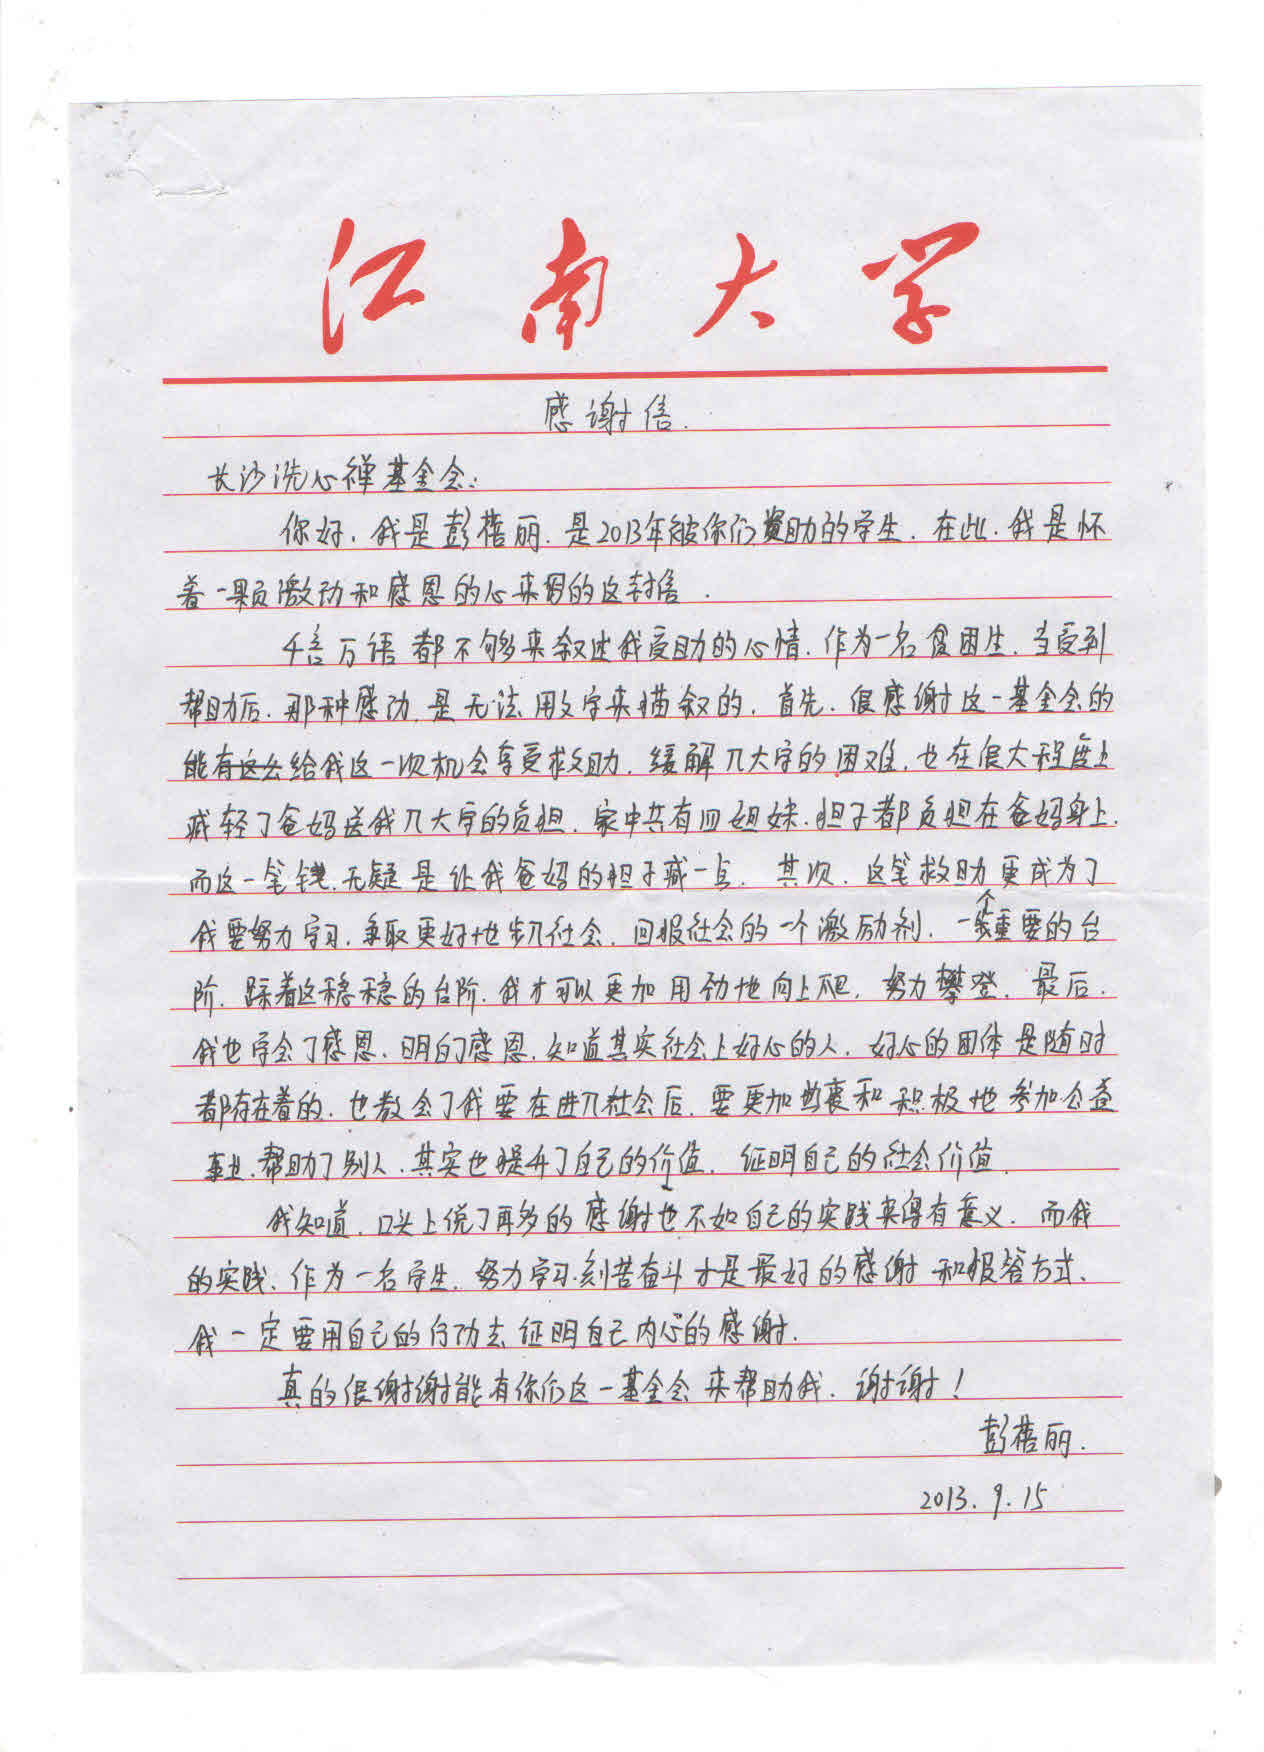 江南大学
感谢信.
长沙洗心禅基金会:
你好,我是彭蓓丽.是2013年被你们资助的学生.在此,我是怀
着一颗激动和感恩的心来写的这封信.
千言万语都不够来叙述我受助的心情.作为一名贫困生.当受到
帮助后.那种感动.是无法用文字来描叙的.首先.很感谢这一基金会的
能有这么给我这一次机会享受救助.缓解入大学的困难.也在很大程度上
减轻了爸妈送我入大学的负担.家中共有四姐妹.担子都负担在爸妈身上.
而这一笔钱.无疑是让我爸妈的担子减一点.其次.这笔救助更成为了
我要努力学习.争取更好地步入社会.回报社会的一个激励剂.一个重要的台
阶.踩着这稳稳的台阶.我才可以更加用劲地向上爬.努力攀登.最后.
我也学会了感恩.明白了感恩.知道其实社会上好心的人.好心的团体是随时
都存在着的.也教会了我要在进入社会后.要更加热衷和积极地参加公益
事业.帮助了别人.其实也提升了自己的价值.证明自己的社会价值.
我知道.口头上说了再多的感谢也不如自己的实践来得有意义.而我
的实践.作为一名学生.努力学习.刻苦奋斗才是最好的感谢和报答方式.
我一定要用自己的行动去证明自己内心的感谢.
真的很谢谢能有你们这一基金会来帮助我.谢谢!
彭蓓丽.
2013.9.15